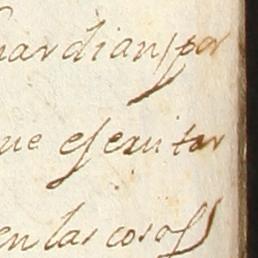 uardian por
ue ejecutar
en las cosas